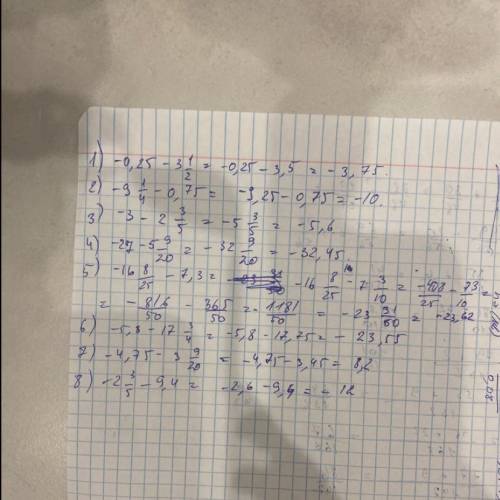 1) -0,25 - 3 1/2 = -0,25 - 3,5 = -3,75.
2) -9 1/4 - 0,75 = -9,25 - 0,75 = -10.
3) -3 - 2 3/5 = -5 3/5 = -5,6
4) -27 - 5 9/20 = -32 9/20 = -32,45.
5) -16 8/25 - 7,3 = -16 8/25 - 7 3/10 = -408/25 - 73/10 =
= -816/50 - 365/50 = -1181/50 = -23 31/50 = -23,62
6) -5,8 - 17 3/4 = -5,8 - 17,75 = -23,55
7) -4,75 - 3 9/20 = -4,75 - 3,45 = 8,2
8) -2 3/5 - 9,4 = -2,6 - 9,4 = -12